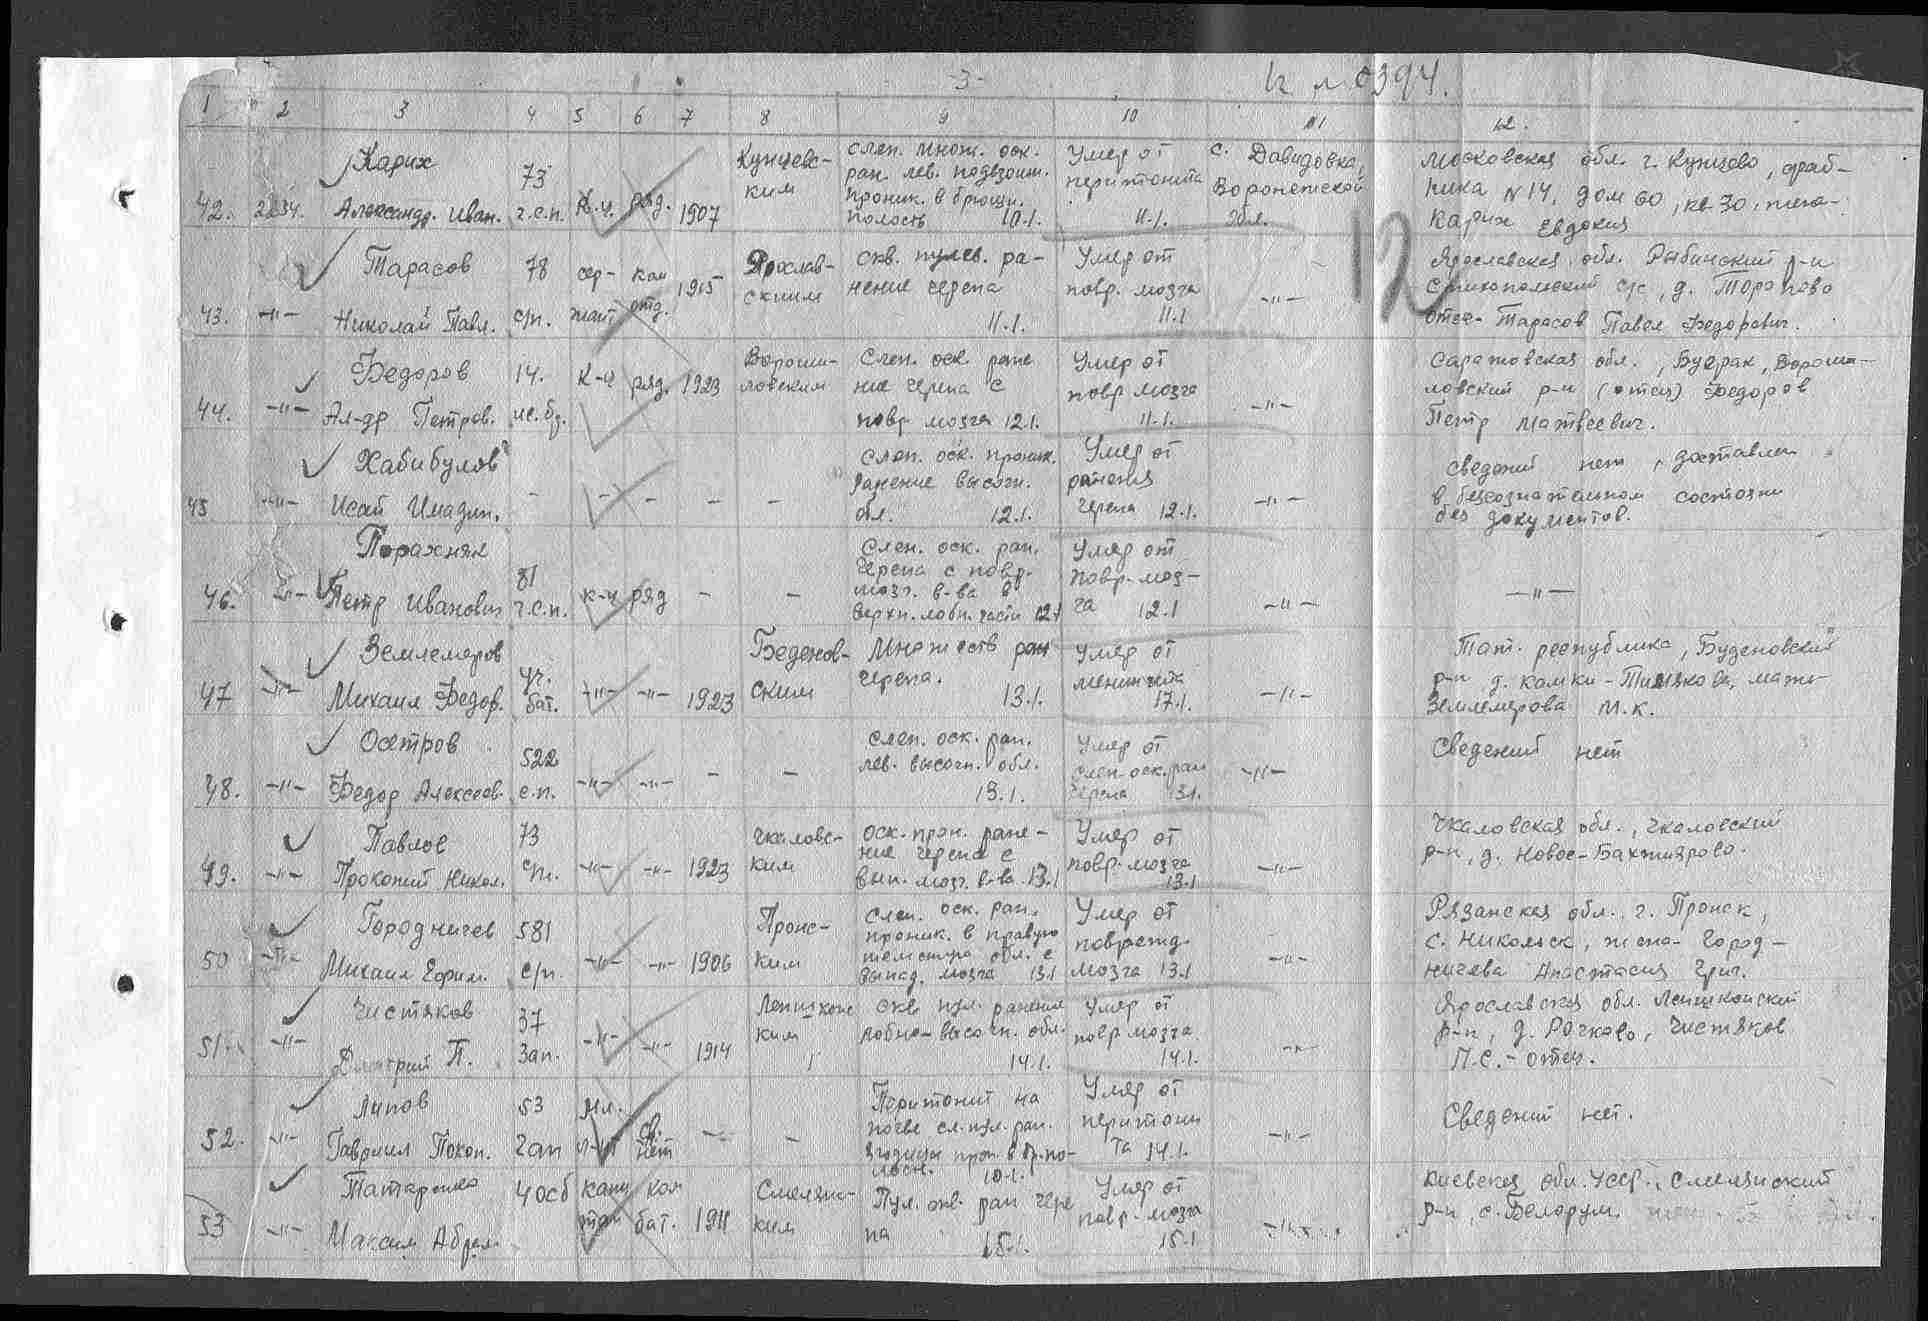 -3-
К № 0394.
1 2 3 4 5 6 7 8 9 10 11 12.
Карих 73 Кунцевс- слеп. множ. оск. Умер от с. Давидовка, Московская обл. г. Кунцево, фаб-
ран. лев. подвздош. перитонита Воронежской рика №14, дом 60, кв. 30, жена-
42. 2234. Александр. Иван. г.с.п. к-ц. ряд. 1907 ким проник. в брюшн. обл. Карих Евдокия
полость 10.1. 11.1.
12
Тарасов 78 сер- ком 1915 Ярослав- скв. пулев. ра- Умер от Ярославская обл. Рыбинский р-н
43. -"- Николай Павл. с/п. жант отд. ским нение черепа повр. мозга -"- с/с, д.
11.1. 11.1 отец- Тарасов Павел Федорович.
Федоров 14. к-ц ряд. 1923 Вороши- Слеп. оск. ране Умер от Саратовская обл., Буерак, Вороши-
ловским ние черепа с повр мозга ловский р-н (отец) Федоров
44. -"- Ал-др Петров. ис. бр. повр мозга 12.1. 11.1. -"- Петр Матвеевич.
Хабибулов Слеп. оск. проник. Умер от сведений нет, доставлен
45 -"- Исай - - - - - ранение височн. ранения -"- в безсознательном состояни
обл. 12.1. черепа 12.1. без документов.
Порахняк 81 Слеп. оск. ран. Умер от
черепа с повр. повр. моз-
46. -"- Петр Иванович г.с.п. к-ц ряд - - мозг. в-ва в га 12.1 -"- -"-
верхн. лобн. части 12.1
Землемеров уч. Беденов- Множеств ран Умер от Тат. республика, Буденовский
47 -"- Михаил Федор. бат. -"- -"- 1923 ским черепа. менингита -"- р-н д. Камки - мать
13.1. 17.1. Землемерова М.К.
Осетров 522 слеп. оск. ран. Умер от Сведений нет
лев. височн. обл. слеп. оск. ран
48. -"- Федор Алексеев. с.п. -"- -"- - - 13.1. черепа 13.1. -"-
Павлов 73 Чкаловс- оск. прон. ране- Умер от Чкаловская обл., Чкаловский
ние черепа с повр. мозга р-н, д. Новое-Бахтиярово.
49. -"- Прокопий Никол. с/п. -"- -"- 1923 ким вып. мозг. в-ва 13.1 13.1 -"-
Городничев 581 Пронс- Слеп. оск. ран. Умер от Рязанская обл., г. Пронск,
проник. в правую поврежд. с. Никольск, жена- Город-
50 -"- Михаил с/п. -"- -"- 1906 ким обл. с мозга 13.1 -"- ничева Анастасия Григ.
мозга 13.1
Чистяков 37 скв. пул. ранение Умер от Ярославская обл.
лобно-височн. обл. повр мозга р-н, д. Рачково, Чистяков
51. -"- Дмитрий П. Зап. -"- -"- 1914 ким 14.1. 14.1. -"- П.С.- отец.
Липов 53 мл. Перитонит на Умер от Сведений нет.
почве сл. пул. ран. перитони
52. -"- Гавриил гап л-нт св. нет - - ягодицы прон. в бр. по- та 14.1. -"-
лость. 10.1.
Татаренко 4 осб капи ком Смелянс- Пул. скв. ран чере Умер от Киевская обл. УССР, Смелянский
53 -"- Максим Абрам. тан бат. 1911 ким па 15.1. повр. мозга 15.1 -"- р-н, с.